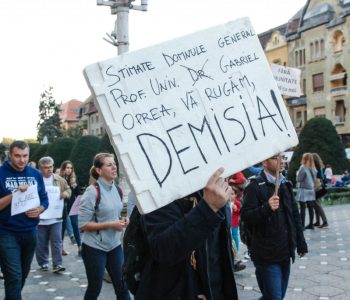 STIMATE DOMNULE GENERAL
PROF. UNIV. DR GABRIEL
OPREA, VĂ RUGĂM,
DEMISIA!
FĂRĂ